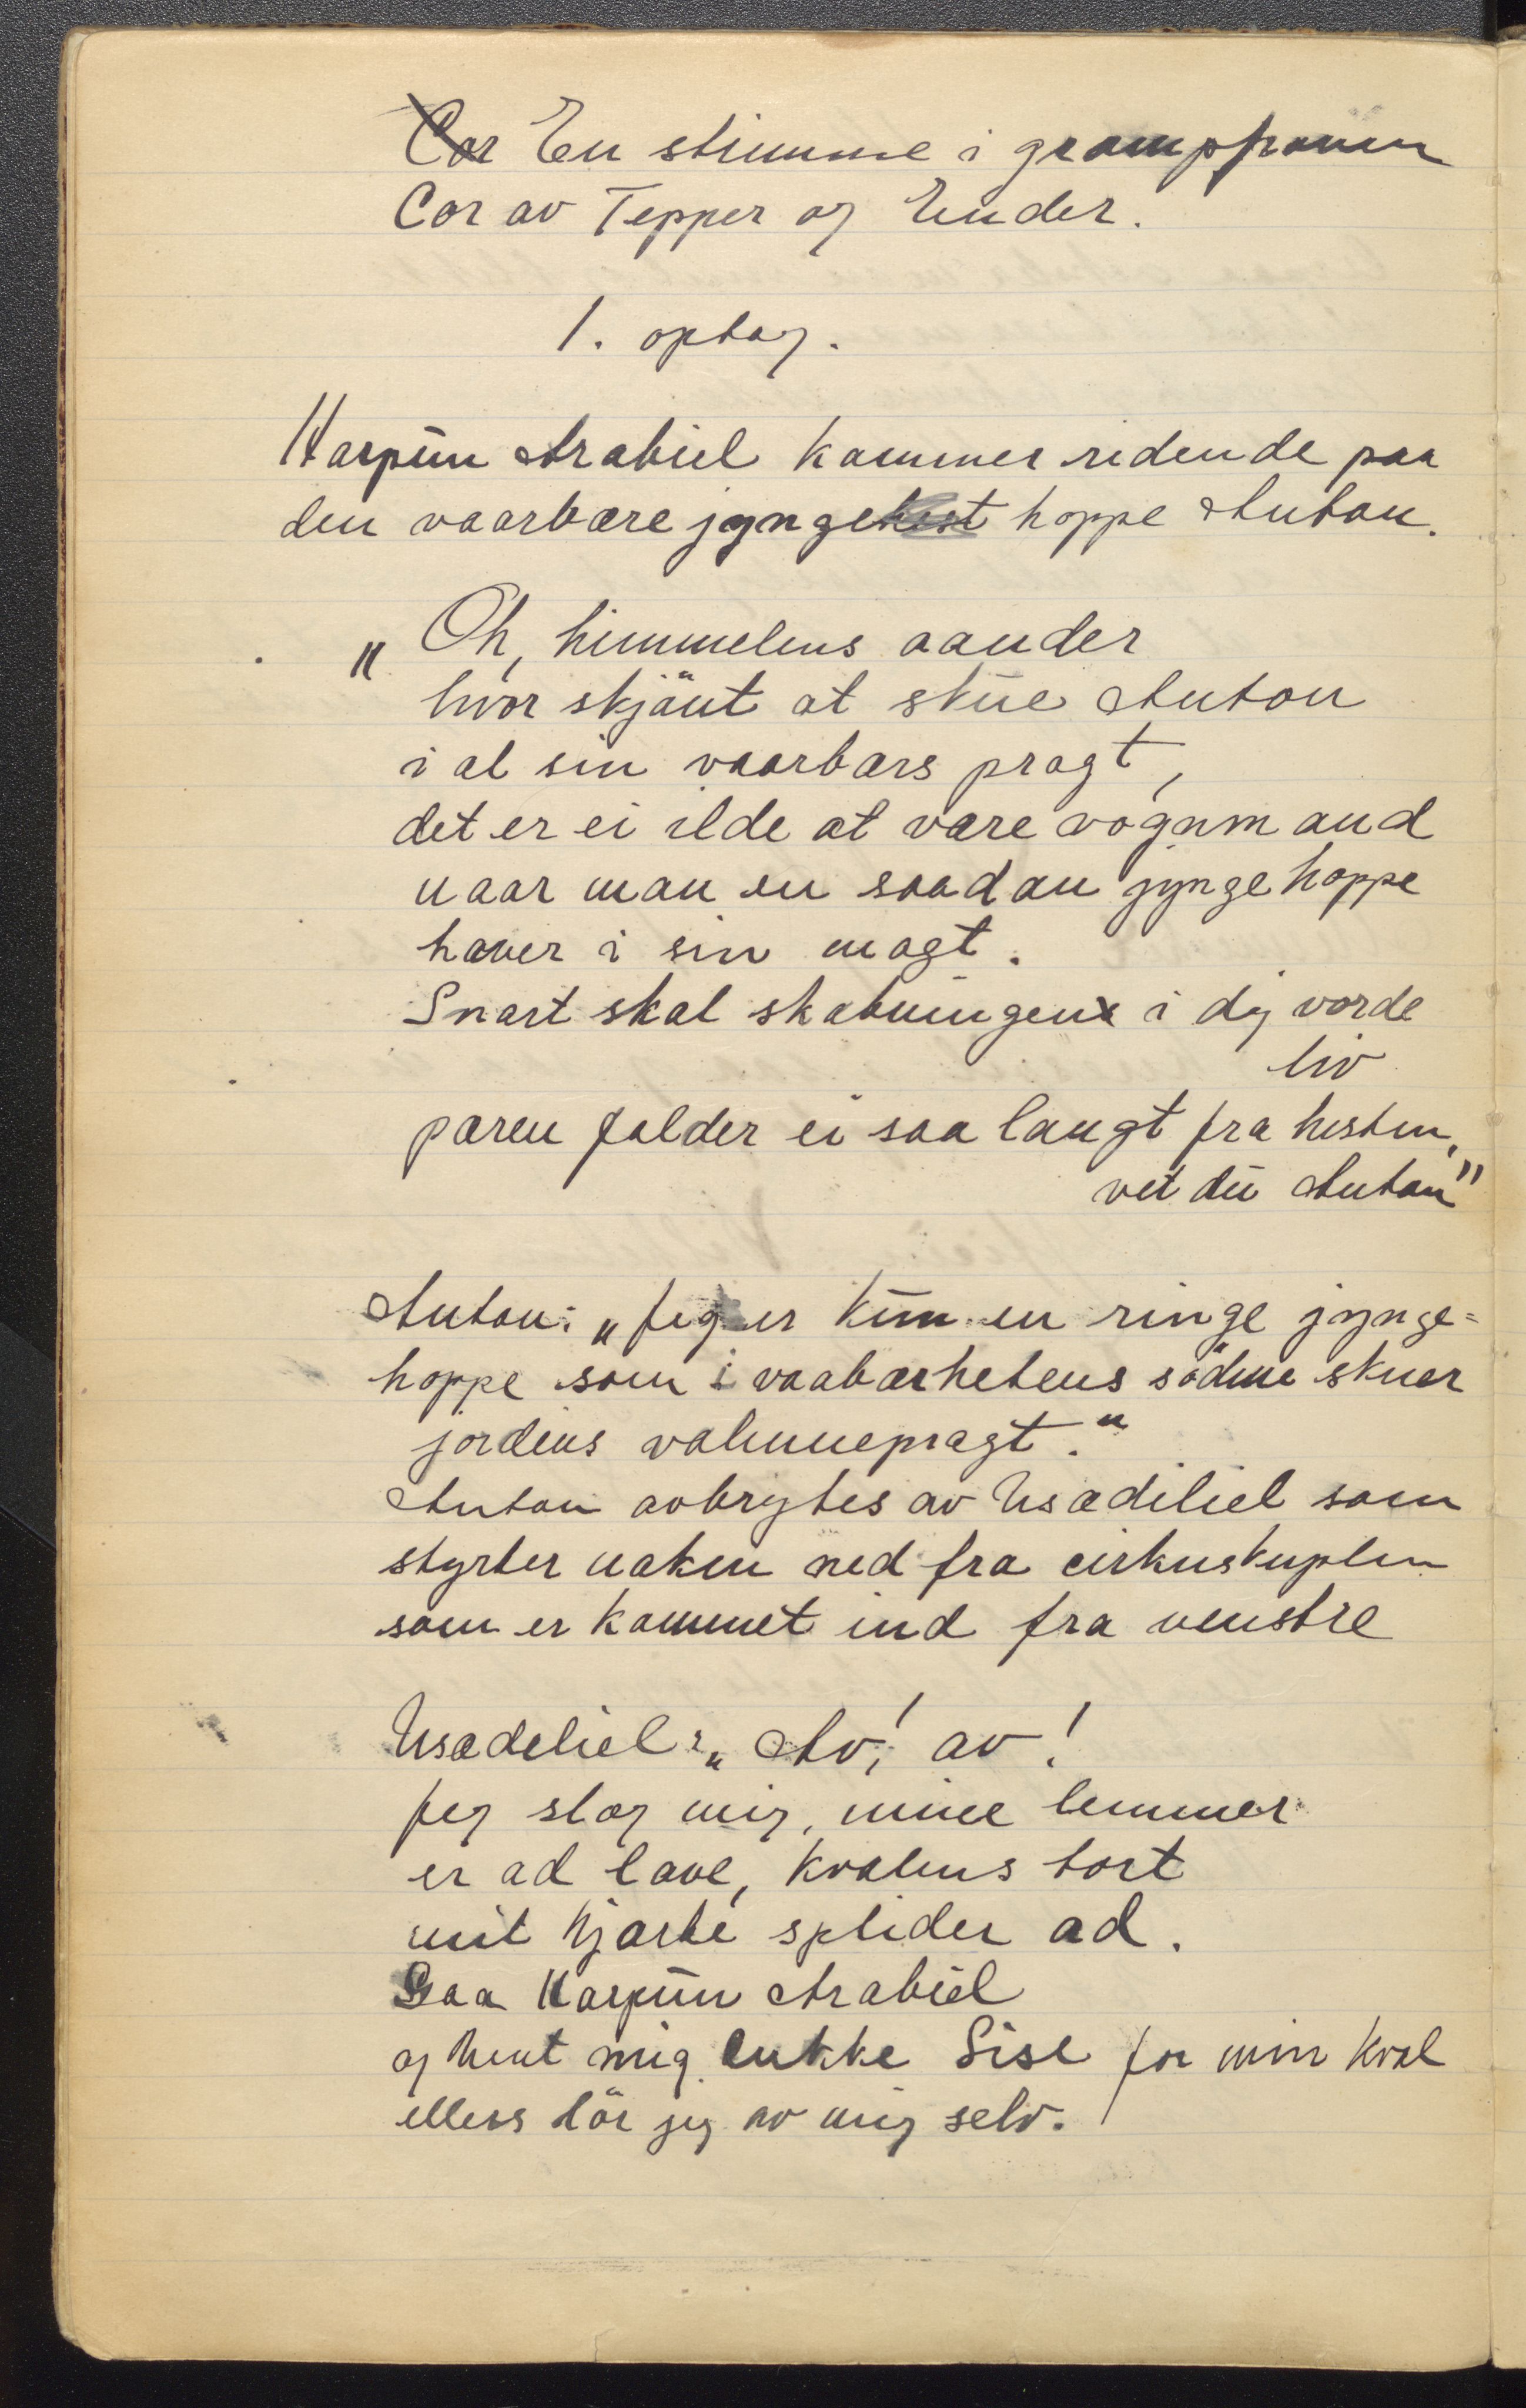 Cor En stemme i gramofonen
Cor av Tepper og Ender.
1. optog.
Harpun Arabiel kommer ridende paa
den vaarbære jyngehest hoppe Anton.
„Oh, himmelens aander
hvor skjönt at skue Anton
i al sin vaarbærs pragt,
det er ei ilde at være vognmand
naar man en saadan jyngehoppe
haver i sin magt.
Snart skal skabningen i dig vorde
liv
pæren falder ei saa langt fra hesten,
vet du Anton"
Anton: „Jeg er kun en ringe jynge=
hoppe som i vaabærhetens södme skuer
jordens valmuepragt."
Anton avbrytes av Usædeliel som
styrter naken ned fra cirkuskuplen
som er kommet ind fra venstre
Usædeliel: „Av! av!
Jeg slog mig, mine lemmer
er ad lave, kvalens tort
mit hjærte splider ad.
Gaa Harpun Arabiel
og hent mig lukke Sise for min kval
ellers dör jeg av mig selv.